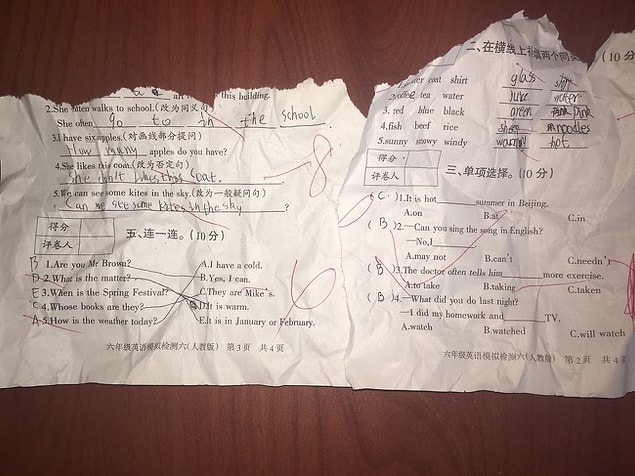 are this building.
2.She often walks to school.(改为同义句)
She often go to in the school
3.I have six apples.(对画线部分提问)
How many apples do you have?
4.She likes this coat.(改为否定句)
She this coat.
5.We can see some kites in the sky.(改为一般疑问句)
Can we see some kites in the sky ?
得分
评卷人
五、连一连。(10分)
B 1.Are you Mr Brown? A.I have a cold.
D 2.What is the matter? B.Yes, I can.
E 3.When is the Spring Festival? C.They are Mike's.
C 4.Whose books are they? D.It is warm.
A 5.How is the weather today? E.It is in January or February.
6
8
六年级英语模拟检测六(人教版) 第3页 共4页
二、在横线上 填两个同 (10分
coat shirt
tea water
3. red blue black green
4.fish beef rice noodles
5.sunny snowy windy hot
得分
评卷人
三、单项选择。(10分)
( C. )1.It is hot summer in Beijing.
A.on B.at C.in
( B )2.—Can you sing the song in English?
—No,I
A.may not B.can't C.needn't
( B )3.The doctor often tells him more exercise.
A.to take B.taking C.taken
( B )4.—What did you do last night?
—I did my homework and TV.
A.watch B.watched C.will watch
六年级英语模拟检测六(人教版) 第2页 共4